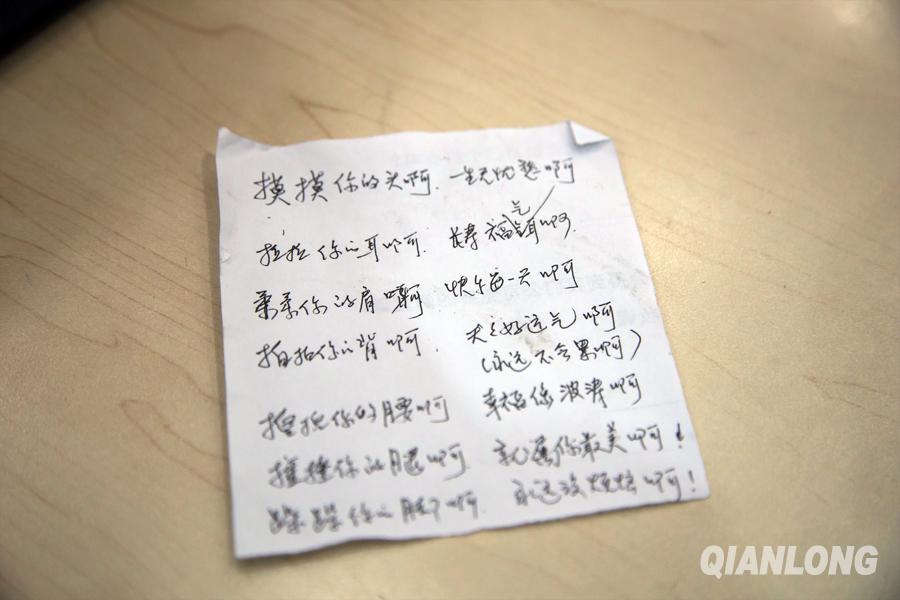 摸摸你的头啊. 一生无忧愁啊
气
拉拉你的耳啊. 长寿福啊.
柔柔你的肩啊 快乐每一天啊
拍拍你的背啊. 天天好运气啊
(永远不会累啊)
你的腰啊 幸福像波涛啊
捶捶你的腿啊 就属你最美啊!
跺跺你的脚啊. 永远没烦恼啊!
QIANLONG